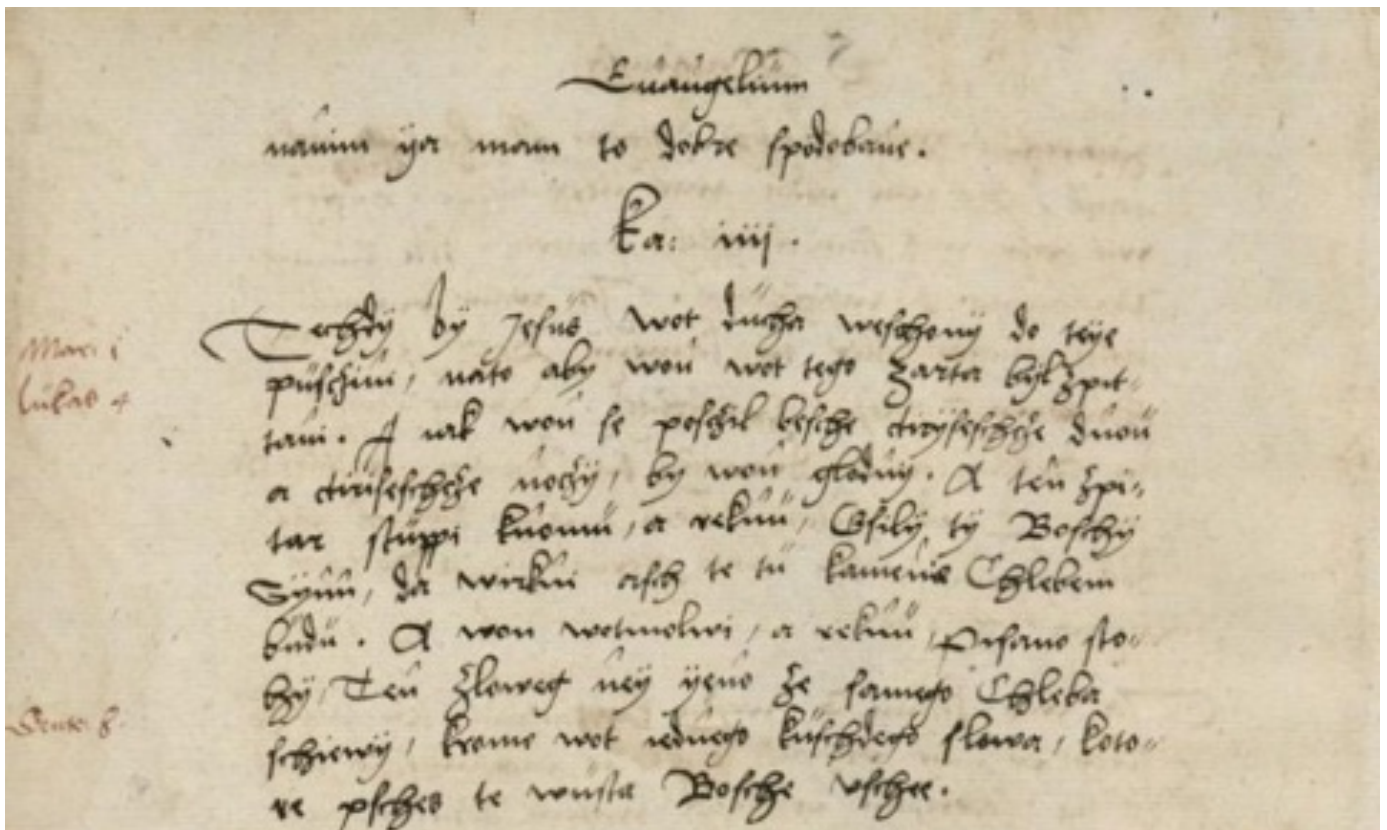 Euangelium
nanim ya mam to dobre spodobane.
Ka: iiij.
Techdy by Jesus wot ducha weschony do teye
Marci
Lukas 4
puschini, nato aby won wot tego Zarta byl Zpit-
tani. A nak won se poschil besche ctiryseschZe dnou
a ctiriseschZe noczy, by won glodny. A ten Zpi-
tar stuppi knomu, a reknu, Gsily ty Boschy
Synn, da wirkni asch te tu kamena Chlebem
budu. A won wotmolwi, a reknu, Pisano sto-
hy, Ten Zloweg ney yeno Ze samego Chleba
Deute: 8.
schiewy, krome wot iednego kuschdego slowa, koto-
re psches te wusta Bosche vschee.